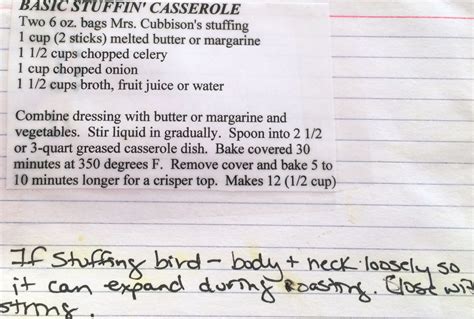 BASIC STUFFIN' CASSEROLE
Two 6 oz. bags Mrs. Cubbison's stuffing
1 cup (2 sticks) melted butter or margarine
1 1/2 cups chopped celery
1 cup chopped onion
1 1/2 cups broth, fruit juice or water
Combine dressing with butter or margarine and
vegetables. Stir liquid in gradually. Spoon into 2 1/2
or 3-quart greased casserole dish. Bake covered 30
minutes at 350 degrees F. Remove cover and bake 5 to
10 minutes longer for a crisper top. Makes 12 (1/2 cup)
If stuffing bird - body + neck loosely so
it can expand during roasting. Close wi
string.